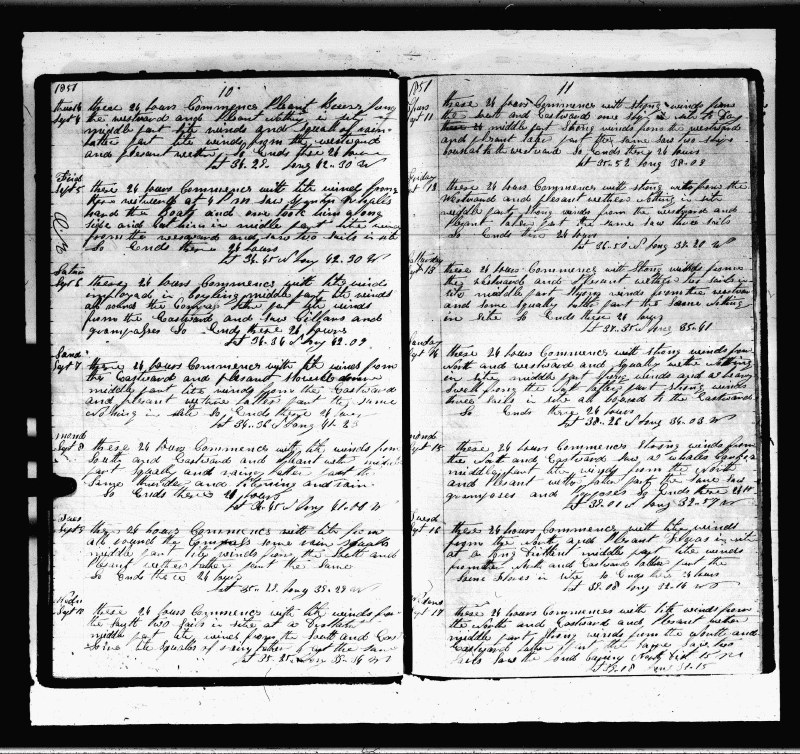 1851
10
Thursd these 24 hours Commences Pleasant Breeze from
Sept 4 the westward and Pleasant nothing in site
middle part lite winds and Squals of rain
latter part lite winds from the westward
and pleasant wether So Ends these 24 hours
Lat 36-29 Long 42-30 W
Frid
Sept 5 these 24 hours Commences with lite winds from
the westward at 4 P m Saw Sperm Whales
the Boats and one took him along
side and cut him in middle part lite winds
from the westward and saw two Sails in site
So Ends these 24 hours
Lat 36-45 N Long 42-30 W
Satur
Sept 6 these 24 hours Commences with lite winds
imployed in Boileing middle part lite winds
all round the Compas latter part lite winds
from the Eastward and Saw
grampuses So Ends these 24 hours
Lat 36-36 N Long 42-09
Sund
Sept 7 these 24 hours Commences with lite winds from
the Eastward and pleasant
middle part lite winds from the Eastward
and pleasant wether latter part the Same
nothing in site So Ends these 24 hours
Lat 36-35 N Long 41-23
Mond
Sept 8 these 24 hours Commences with lite winds from
South and Eastward and pleasant wether middle
part Squally and rainy latter part the
Same thunder and litening and rain
So Ends these 24 hours
Tues
Sept 9 these 24 hours Commences with lite from
all round the Compass some rain Squals
middle part lite winds from the South and
Pleasant wether latter part the Same
So Ends these 24 hours
Lat 35-21 Long 39-29 W
Wedn
Sept 10 these 24 hours Commences with lite winds from
the South two Sails in site at a Distance
middle part lite winds from the South and East
Some lite Squals of rainy latter part the same
1851
11
Thurs these 24 hours Commences with Strong winds from
Sept 11 the South and Eastward one Ship in site to Day
middle part Strong winds from the westward
and pleasant later part the same saw two Ships
bound to the westward So Ends these 24 hours
Lat 35-52 Long 38-09
Friday
Sept 12 these 24 hours Commences with Strong winds from the
Westward and pleasant wether nothing in site
middle part Strong winds from the westward and
Pleasant latter part the same saw three Sails
So Ends these 24 hours
Lat 36-50 N Long 37-20 W
Saturday
Sept 13 these 24 hours Commences with Strong winds from
the Westward and Pleasant wether two Sails in
site middle part Strong winds from the westward
and some Squally latter part the Same nothing
in Site So Ends these 24 hours
Lat 37-35 N Long 35-41
Sunday
Sept 14 these 24 hours Commences with Strong winds from
North and westward and Squally wether nothing
in site middle part Strong winds and a heavy
latter part Strong winds
three Sails in site all bound to the Eastward
So Ends these 24 hours
Lat 38-25 N Long 34-03 W
Mond
Sept 15 these 24 hours Commences Strong winds from
the North and Eastward Saw
middle part lite winds from the North
and Pleasant wether latter part the same saw
grampuses and porpoises So Ends these 24 H
Lat 39-01 N Long 32-57 W
Tuesd
Sept 16 these 24 hours Commences with lite winds
from the North and Pleasant Flores in site
at a long Distant middle part lite winds
from the North and Eastward latter part the
Same Flores in site So Ends these 24 hours
Lat 39-08 Long 32-16 W
Wedns
Sept 17 these 24 hours Commences with lite winds from
the North and Eastward and Pleasant wether
middle part Strong winds from the North and
Eastward latter part the same Saw two
Sails Saw the land bearing North Dist 15 m
Lat 39-18 Long 31-15